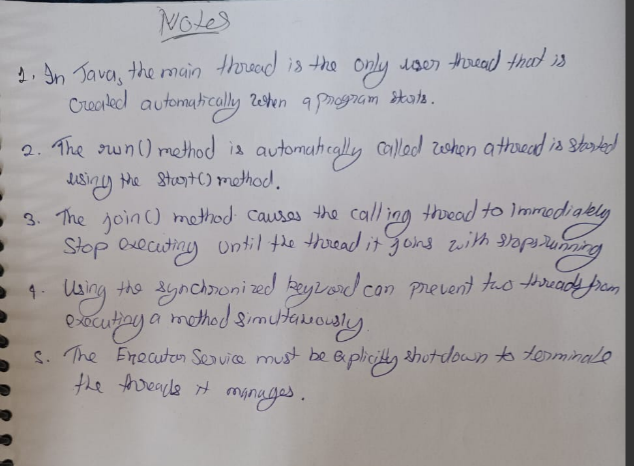 Notes
1. In Java, the main thread is the only user thread that is
Created automatically when a program starts.
2. The run() method is automatically called when a thread is started
using the start() method.
3. The join() method causes the calling thread to immediately
Stop executing until the thread it joins with stops running
4. Using the synchronized keyword can prevent two threads from
executing a method simultaneously.
5. The Executor Service must be explicitly shutdown to terminate
the threads it manages.